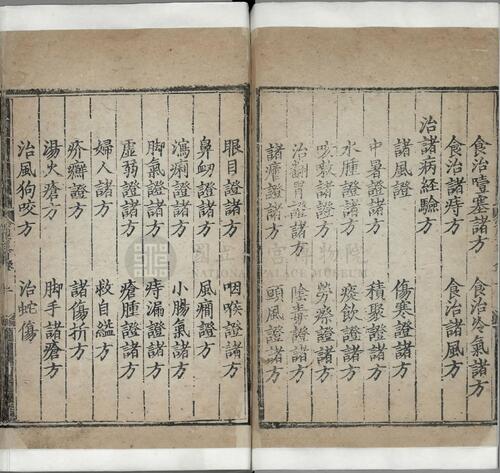 食治噎塞諸方 食治冷氣諸方
食治諸痔方 食治諸風方
治諸病經驗方
諸風證 傷寒證諸方
中暑證諸方 積聚證諸方
水腫證諸方 痰飲證諸方
咳嗽證諸方 勞瘵證諸方
治翻胃證諸方 陰毒證諸方
諸瘧證諸方 頭風證諸方
眼目證諸方 咽喉證諸方
鼻衂證諸方 風癎證方
瀉痢證諸方 小腸氣諸方
脚氣證諸方 痔漏證諸方
虛弱證諸方 瘡腫證諸方
婦人諸方 救自縊方
疥癬證諸方 諸傷折方
湯火瘡方 脚手諸瘡方
治風狗咬方 治蛇傷
NATIONAL PALACE MUSEUM